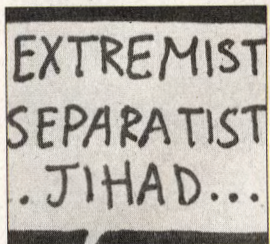 EXTREMIST
SEPARATIST
. JIHAD...